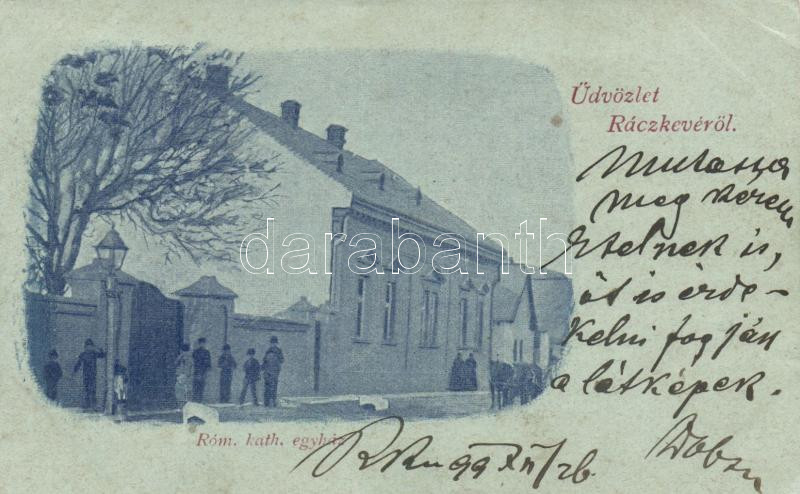 Üdvözlet
Ráczkevéről.
Mutassa
meg kérem
Etelnek is,
őt is érde-
kelni fogják
a látképek.
Róm. kath. egyház
99 XII/26.
darabanth